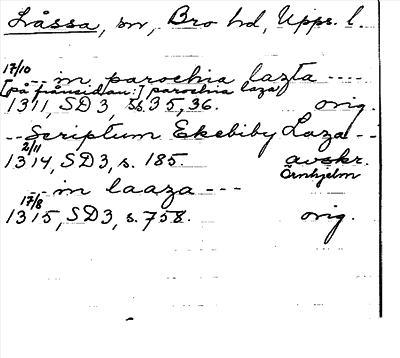 Låssa, sn, Bro hd, Upps. l.
17/10
--- in parochia lazta ----
[på frånsidan:] parochia laza
1311, SD3, ss. 35, 36. orig.
-- Scriptum Ekebiby Laza --
2/11
1314, SD3, s. 185. avskr.
Örnhjelm
--- in laaza ---
17/8
1315, SD3, s. 758. orig.